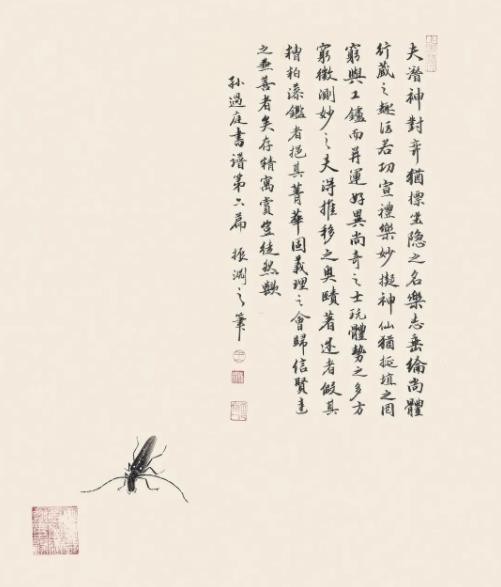 夫潛神對弈猶標坐隐之名樂志垂綸尚體
行藏之趣詎若功宣禮樂妙擬神仙猶埏埴之罔
窮與工鑪而并運好異尚奇之士玩體勢之多方
窮微測妙之夫得推移之奧賾著述者假其
糟粕藻鑑者挹其菁華固義理之會歸信賢達
之兼善者矣存精寓賞豈徒然歟
孙過庭書谱第六篇 振淵之筆